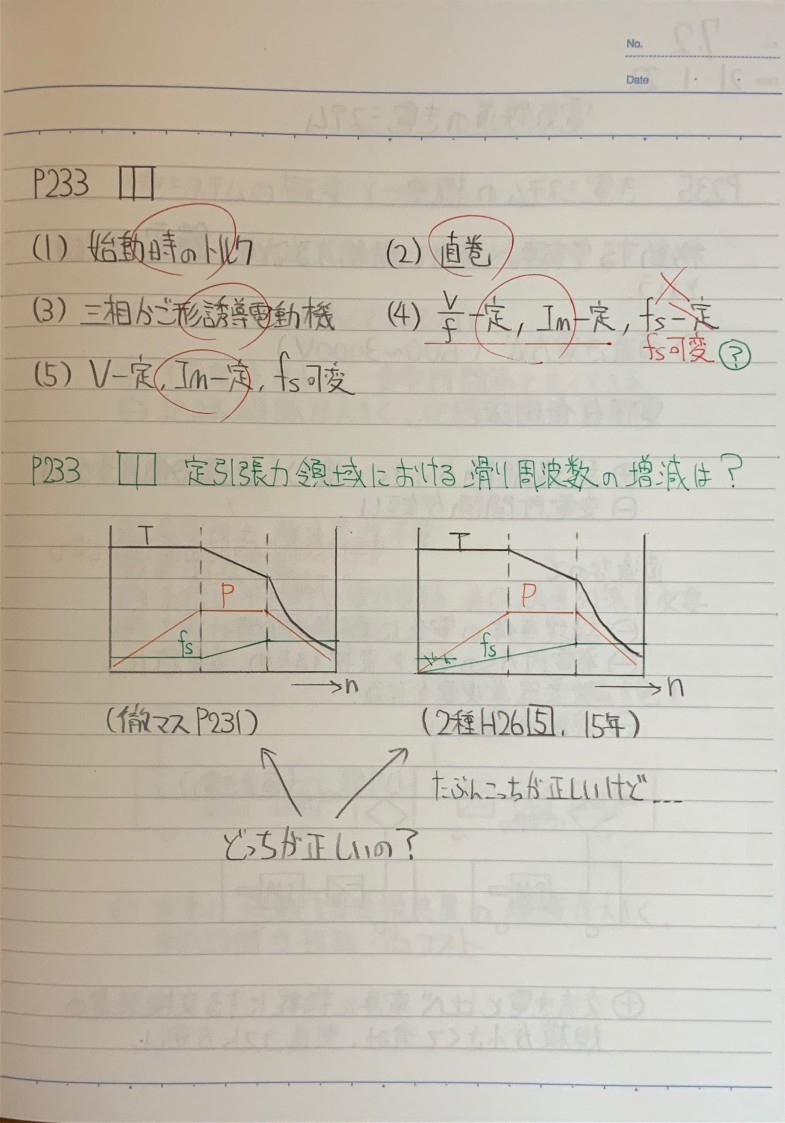 No.
Date
P233 □□
(1) 始動時のトルク (2) 直巻
(3) 三相かご形誘導電動機 (4) V/f 一定, Im一定, fs一定
fs可変 ?
(5) V一定, Im一定, fs可変
P233 □□ 定引張力領域における滑り周波数の増減は?
T T
P P
fs fs
→n →n
(徹マスP231) (2種H26 5, 15年)
たぶんこっちが正しいけど...
どっちが正しいの?